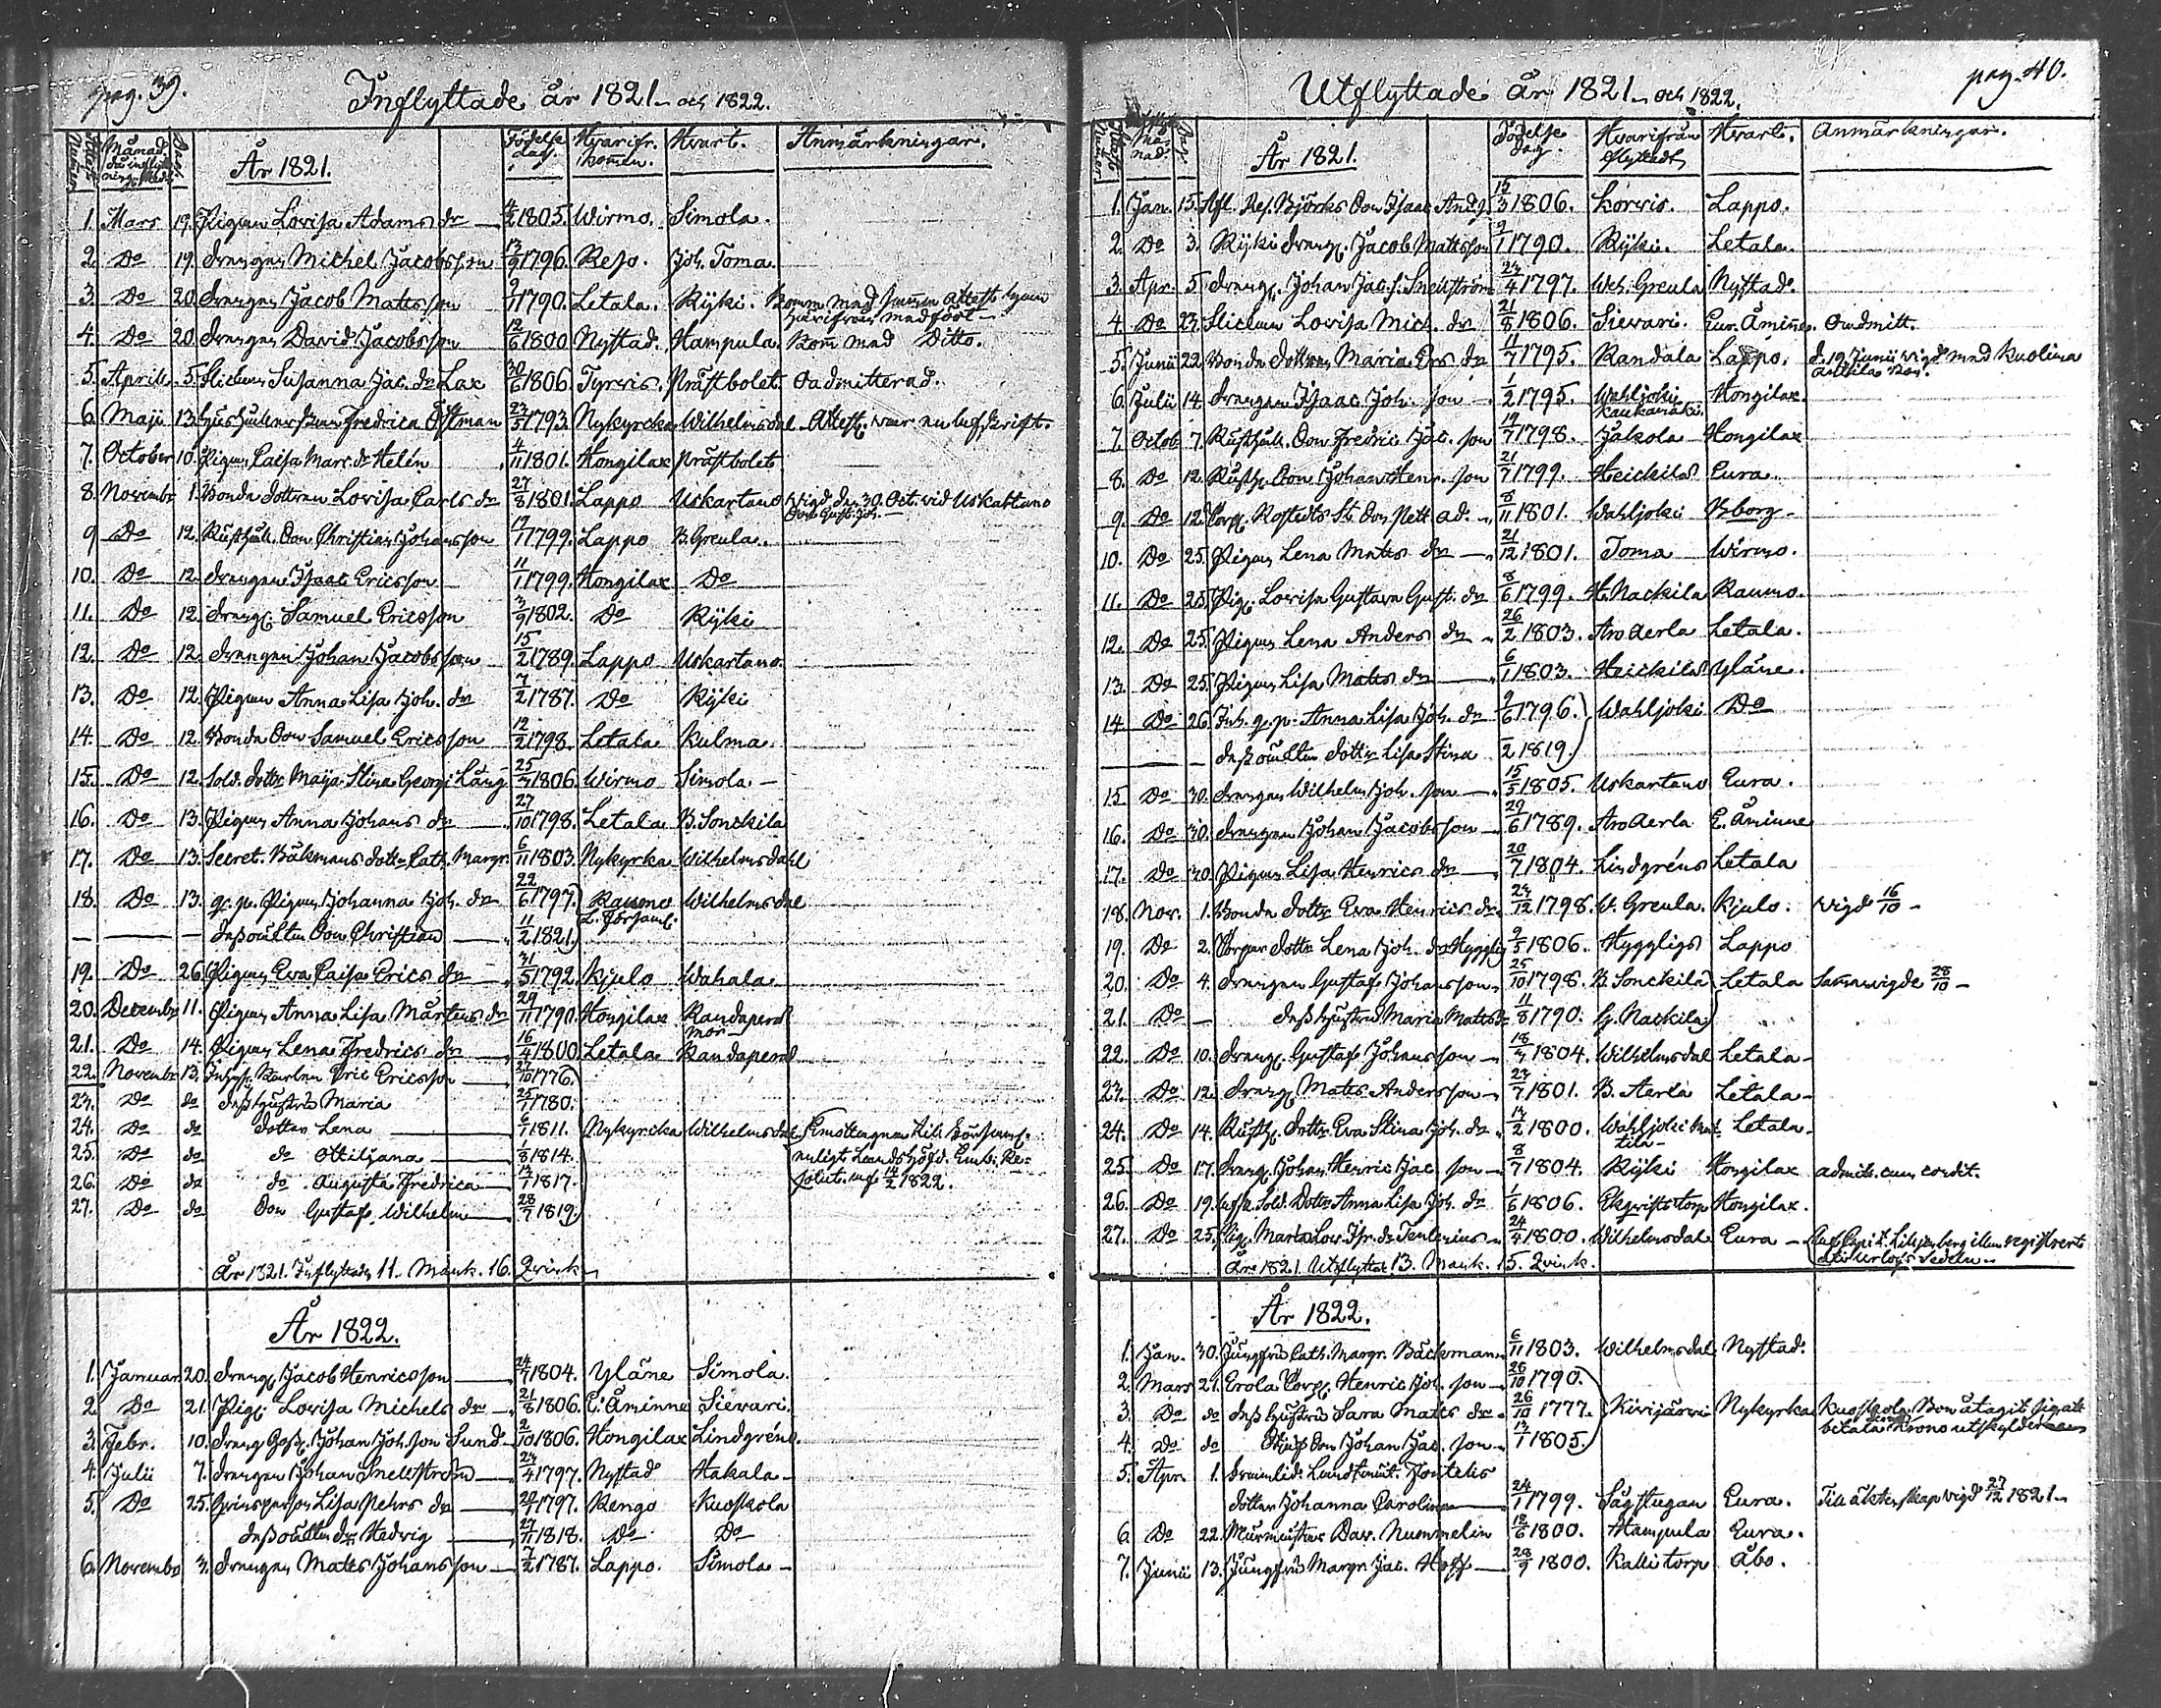 pag. 39.
Inflyttade år 1821 och 1822.
Månad Födelse dag. Hvarifr. komen. Hvart. Anmärkningar.
År 1821.
1. Mars 19. Pigan Lovisa Adams dr 4/2 1805. Wirmo. Simola.
2. Do 19. Drengen Michel Jacobsson 13/9 1796. Reso. Joh. Toma.
3. Do 20. Drengen Jacob Mattsson 9/1 1790. Letala. Kÿki. Kom med samma attest som
härifrån medfört
4. Do 20. Drengen David Jacobsson 12/6 1800. Nystad. Hampula. Kom med Ditto.
5. Aprill 5. Flickan Susanna Jac. dr Lax 30/6 1806. Tyrvis. Prästbolet. Oadmitterad.
6. Maji 13. Hushållerskan Fredrica Östman 23/5 1793. Nykyrcka Wilhelmsdal Attest. var en afskrift.
7. October 10. Pigan Caisa Marc. dr Helén 4/11 1801. Hongilax Prästbolet
8. Novembr 1. Bonde dottren Lovisa Carls dr 27/8 1801. Lappo Uskartano Vigd den 30. Oct. vid Uskartano
Son Gust. Joh.
9 Do 12. Rusthåll. Son Christian Johansson 19/1 1799. Lappo B. Greula.
10. Do 12. Drengen Isaac Ericsson 11/1 1799. Hongilax Do
11. Do 12. Dreng. Samuel Ericsson 3/9 1802. Do Kÿki
12. Do 12. Drengen Johan Jacobsson 15/2 1789. Lappo Uskartano.
13. Do 12. Pigan Anna Lisa Joh. dr 7/2 1787. Do Kÿki
14. Do 12. Bonde Son Samuel Ericsson 12/2 1798. Letala Kulma.
15. Do 12. Sold. dottr Maja Stina Georgi Lång 25/3 1806. Wirmo Simola.
16. Do 13. Pigan Anna Johans dr 27/10 1798. Letala B. Sonckila
17. Do 13. Secret. Bäkmans dottr Cath. Margr. 6/11 1803. Nykyrka Wilhelmsdahl
18. Do 13. q.p. Pigan Johanna Joh. dr 22/6 1797. Raumo Wilhelmsdal
L. Församl.
Dess oäkta Son Christian 11/2 1821.
19. Do 26. Pigan Eva Caisa Erics dr 31/5 1792. Kjulo Wahala.
20. Decembr 11. Pigan Anna Lisa Mårtens dr 29/11 1790. Hongilax Randaperä
mor
21. Do 14. Pigan Lena Fredrics dr 16/4 1800. Letala Randaperä
22. Novembr 13. Inhys. Karlen Eric Ericsson 27/10 1776.
23. Do do dess hustru Maria 25/1 1780.
24. Do do dotter Lena 6/1 1811. Nykyrcka Wilhelmsdal Emottagne till Församl.
25. Do do do Ottiliana 1/8 1814. enligt Landshöfd. Embs. Re-
26. Do do do Augusta Fredrica 13/7 1817. solut. af 14/2 1822.
27. Do do Son Gustaf Wilhelm 28/7 1819.
År 1821. Inflyttade 11. Mank. 16. Qvink.
År 1822.
1. Januar 20. Dreng Jacob Henricsson 24/7 1804. Yläne Simola.
2. Do 21. Pig. Lovisa Michels dr 21/8 1806. E. Åminne Sievari.
3. Febr. 10. Dreng Goss. Johan Joh. son Sund 2/10 1806. Hongilax Lindgréns.
4. Julii 7. Drengen Johan Snellström 24/4 1797. Nystad Hakala
5. Do 25. Qvinsperson Lisa Pehrs dr 20/1 1797. Kengo Kuoskola
Dess oäkta dr Hedvig 27/11 1818. Do Do
6. Novembr 3. Drengen Matts Johansson 7/2 1787. Lappo. Simola
pag. 40.
Utflyttade År 1821 och 1822.
Månad. Dag. Födelse dag. Hvarifrån flyttadt Hvart. Anmärkningar.
År 1821.
1. Jan. 15. Afl. Ref. Björks Son Isaac Andr. 15/3 1806. Korvis. Lappo.
2. Do 3. Kÿki Dreng. Jacob Mattsson 9/1 1790. Kÿki. Letala.
3. Apr. 5 Dreng. Johan Jac. s. Snellström 24/4 1797. Weh. Greula Nystad.
4. Do 23. Flickan Lovisa Mich. dr 21/8 1806. Sievari. Eur. Åmiñe. Oadmitt.
5. Junii 22. Bonde dottren Maria Ers dr 11/7 1795. Kandala Lappo. d. 19 Junii vigd med Kuolima
Anttila Bon.
6. Julii 14. Drengen Isaac Joh. son 1/2 1795. Wahljoki Hongilax.
7. Octob. 7. Rusthåll. Son Fredric Jac. son 19/7 1798. Jakola Hongilax
8. Do 12. Rusth. Son Johan Henr. son 21/7 1799. Heickilä Eura.
9. Do 12. Corp. Rostedts St. Son Pett. Ad. 8/11 1801. Wahljoki B:borg
10. Do 25. Pigan Lena Matts dr 21/12 1801. Toma Wirmo.
11. Do 25. Pig. Lovisa Gustava Gust. dr 8/6 1799. H. Nackila Raumo.
12. Do 25. Pigan Lena Anders dr 26/2 1803. Aro Aerla Letala.
13. Do 25. Pigan Lisa Matts dr 6/1 1803. Heickilä Yläne.
14. Do 26. Inh. q.p. Anna Lisa Joh. dr 9/6 1796. Wahljoki Do
dess oäkta dotter Lisa Stina /2 1819.
15 Do 30. Drengen Wilhelm Joh. son 15/5 1805. Uskartano Eura.
16. Do 30. Drengen Johan Jacobsson 29/6 1789. Aro Aerla E. Åminne
17. Do 30. Pigan Lisa Henrics dr 20/7 1804. Lindgréns Letala
18. Nov. 1. Bonde dottr Eva Henrics dr 24/12 1798. W. Greula. Kjulo. vigd 16/10
19. Do 2. Torpar dottr Lena Joh. dr Hygglig 9/5 1806. Hyggligs Lappo
20. Do 4. Drengen Gustaf Johansson 25/10 1798. B. Sonckila Letala Samanvigde 28/10
21. Do dess hustru Maria Matts dr 11/8 1790. G. Nackila
22. Do 10. Dreng. Gustaf Johansson 18/3 1804. Wilhelmsdal Letala
23. Do 12. Dreng. Matts Andersson 23/7 1801. B. Aerla Letala
24. Do 14. Rusth. dottr Eva Stina Joh. dr 14/2 1800. Wahljoki Letala
25. Do 17. Dreng. Johan Henric Jac. son 8/7 1804. Kÿki Hongilax admitt. cum condit.
26. Do 19. Afsk. Sold. Dottr Anna Lisa Joh. dr 1/6 1806. Hongilax.
27. Do 25. Pig. Maria Lov. Isr. dr Tenlenius 24/4 1800. Wilhelmsdal Eura
År 1821. Utflyttat 13. Mank. 15. Qvink.
År 1822.
1. Jan. 30. Jungfru Cath. Margr. Bäckman 6/11 1803. Wilhelmsdal Nystad.
2. Mars 21. Erola Torp. Henric Joh. son 26/10 1790.
3. Do do dess hustru Sara Matts dr 26/10 1777. Kivijärvi Nykyrka Kuoskola Bon åtagit sig att
betala Krono utskylder
4. Do do Styf Son Johan Jac. son 13/1 1805.
5. Apr. 1. Framlid. Lundtmät. Fontelis
dotter Johanna Carolina 24/1 1799. Sågstugan Eura. Till äktenskap vigd 27/12 1821.
6. Do 22. Murmästar Dav. Nummelin 12/6 1800. Hampula Eura.
7. Junii 13. Jungfru Margr. Jac. Hoff 28/9 1800. Kallitorp Åbo.